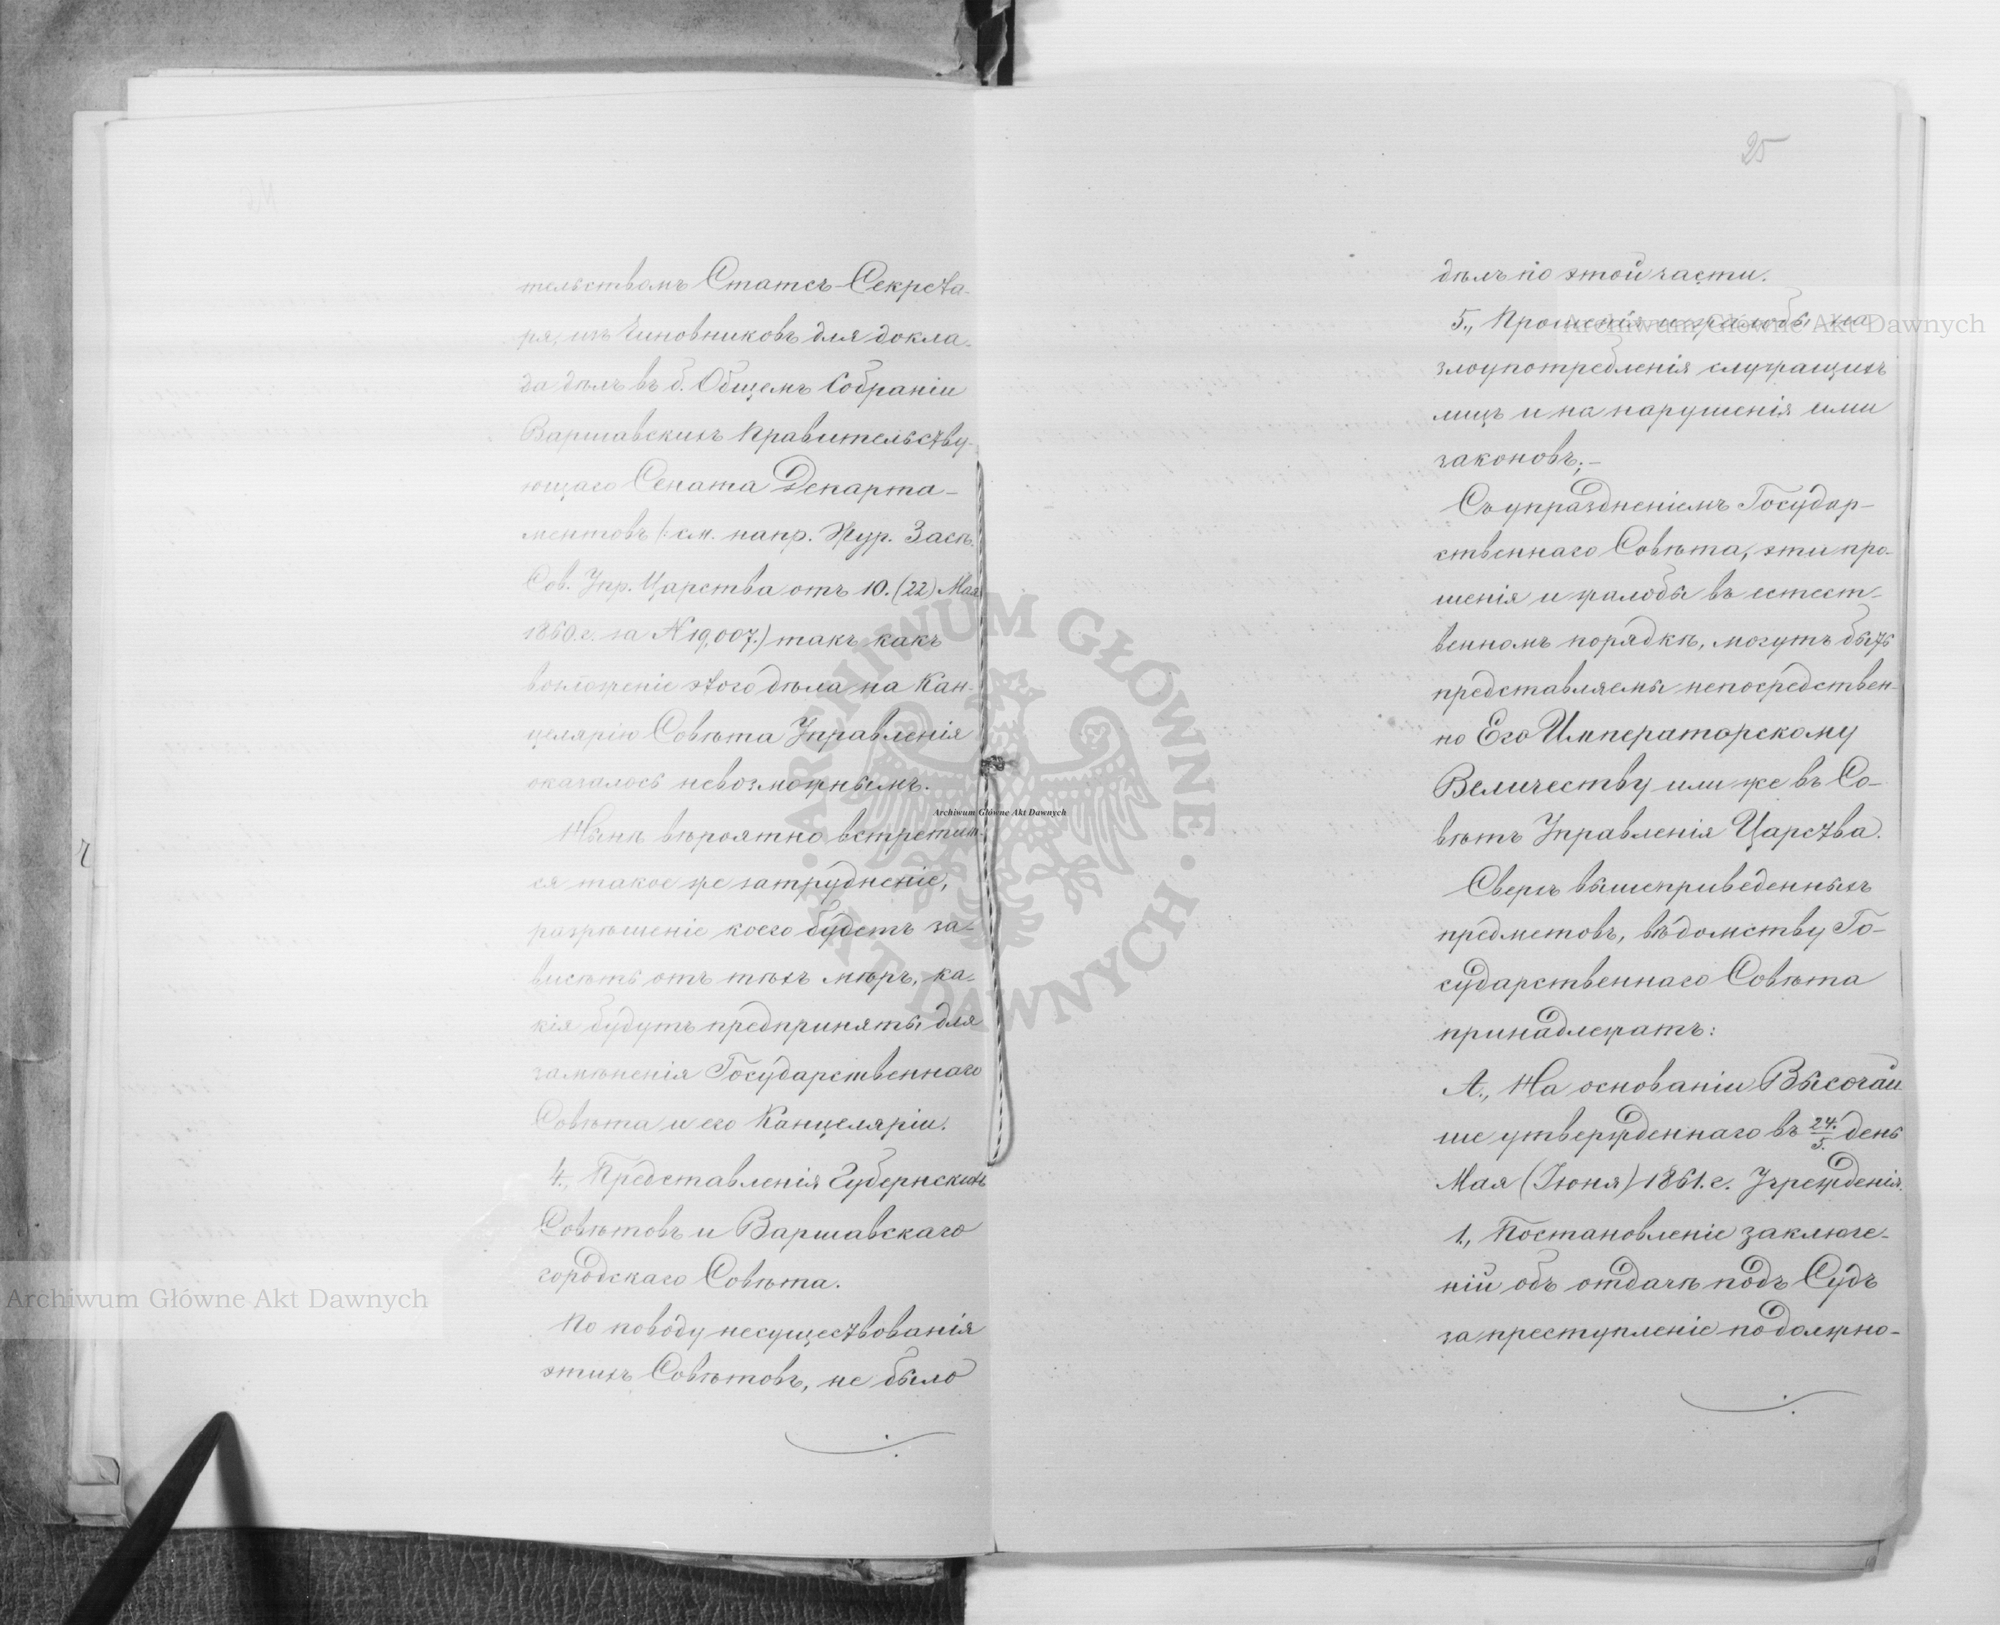 тельствомъ Статсъ-Секрета-
ря, изъ Чиновниковъ для докла-
да дѣлъ въ б. Общемъ Собраніи
Варшавскихъ Правительству-
ющаго Сената Департа-
ментовъ /: см. напр. Жур. Засѣ.
Сов. Упр. Царства отъ 10. (22) Мая
1860. г. за N 19,007.) такъ какъ
возложеніе этого дѣла на Кан-
целярію Совѣта Управленія
оказалось невозможнымъ.
Нынѣ вѣроятно встретит-
ся такое же затрудненіе,
разрѣшеніе коего будетъ за-
висѣть отъ тѣхъ мѣръ, ка-
кія будутъ предприняты для
замѣненія Государственнаго
Совѣта и его Канцеляріи.
4., Представленія Губернскихъ
Совѣтовъ и Варшавскаго
городскаго Совѣта.
По поводу несуществованія
этихъ Совѣтовъ, не было
25
дѣлъ по этой части.
5., Прошенія и жалобы на
злоупотребленія служащихъ
лицъ и на нарушенія ими
законовъ;-
Съ упраздненіемъ Государ-
ственнаго Совѣта, эти про-
шенія и жалобы въ естест-
венномъ порядкѣ, могутъ быть
представляемы непосредствен-
но Его Императорскому
Величеству или же въ Со-
вѣтъ Управленія Царства.
Сверхъ вышеприведенныхъ
предметовъ, вѣдомству Го-
сударственнаго Совѣта
принадлежатъ:
А., На основаніи Высочай
ше утвержденнаго въ 24./5. день
Мая (Іюня) 1861. г. Учрежденія.
1., Постановленіе заключе-
ній объ отдачѣ подъ Судъ
за преступленіе по должно-
Archiwum Główne Akt Dawnych
Archiwum Główne Akt Dawnych
Archiwum Główne Akt Dawnych
ARCHIWUM GŁÓWNE · AKT DAWNYCH ·